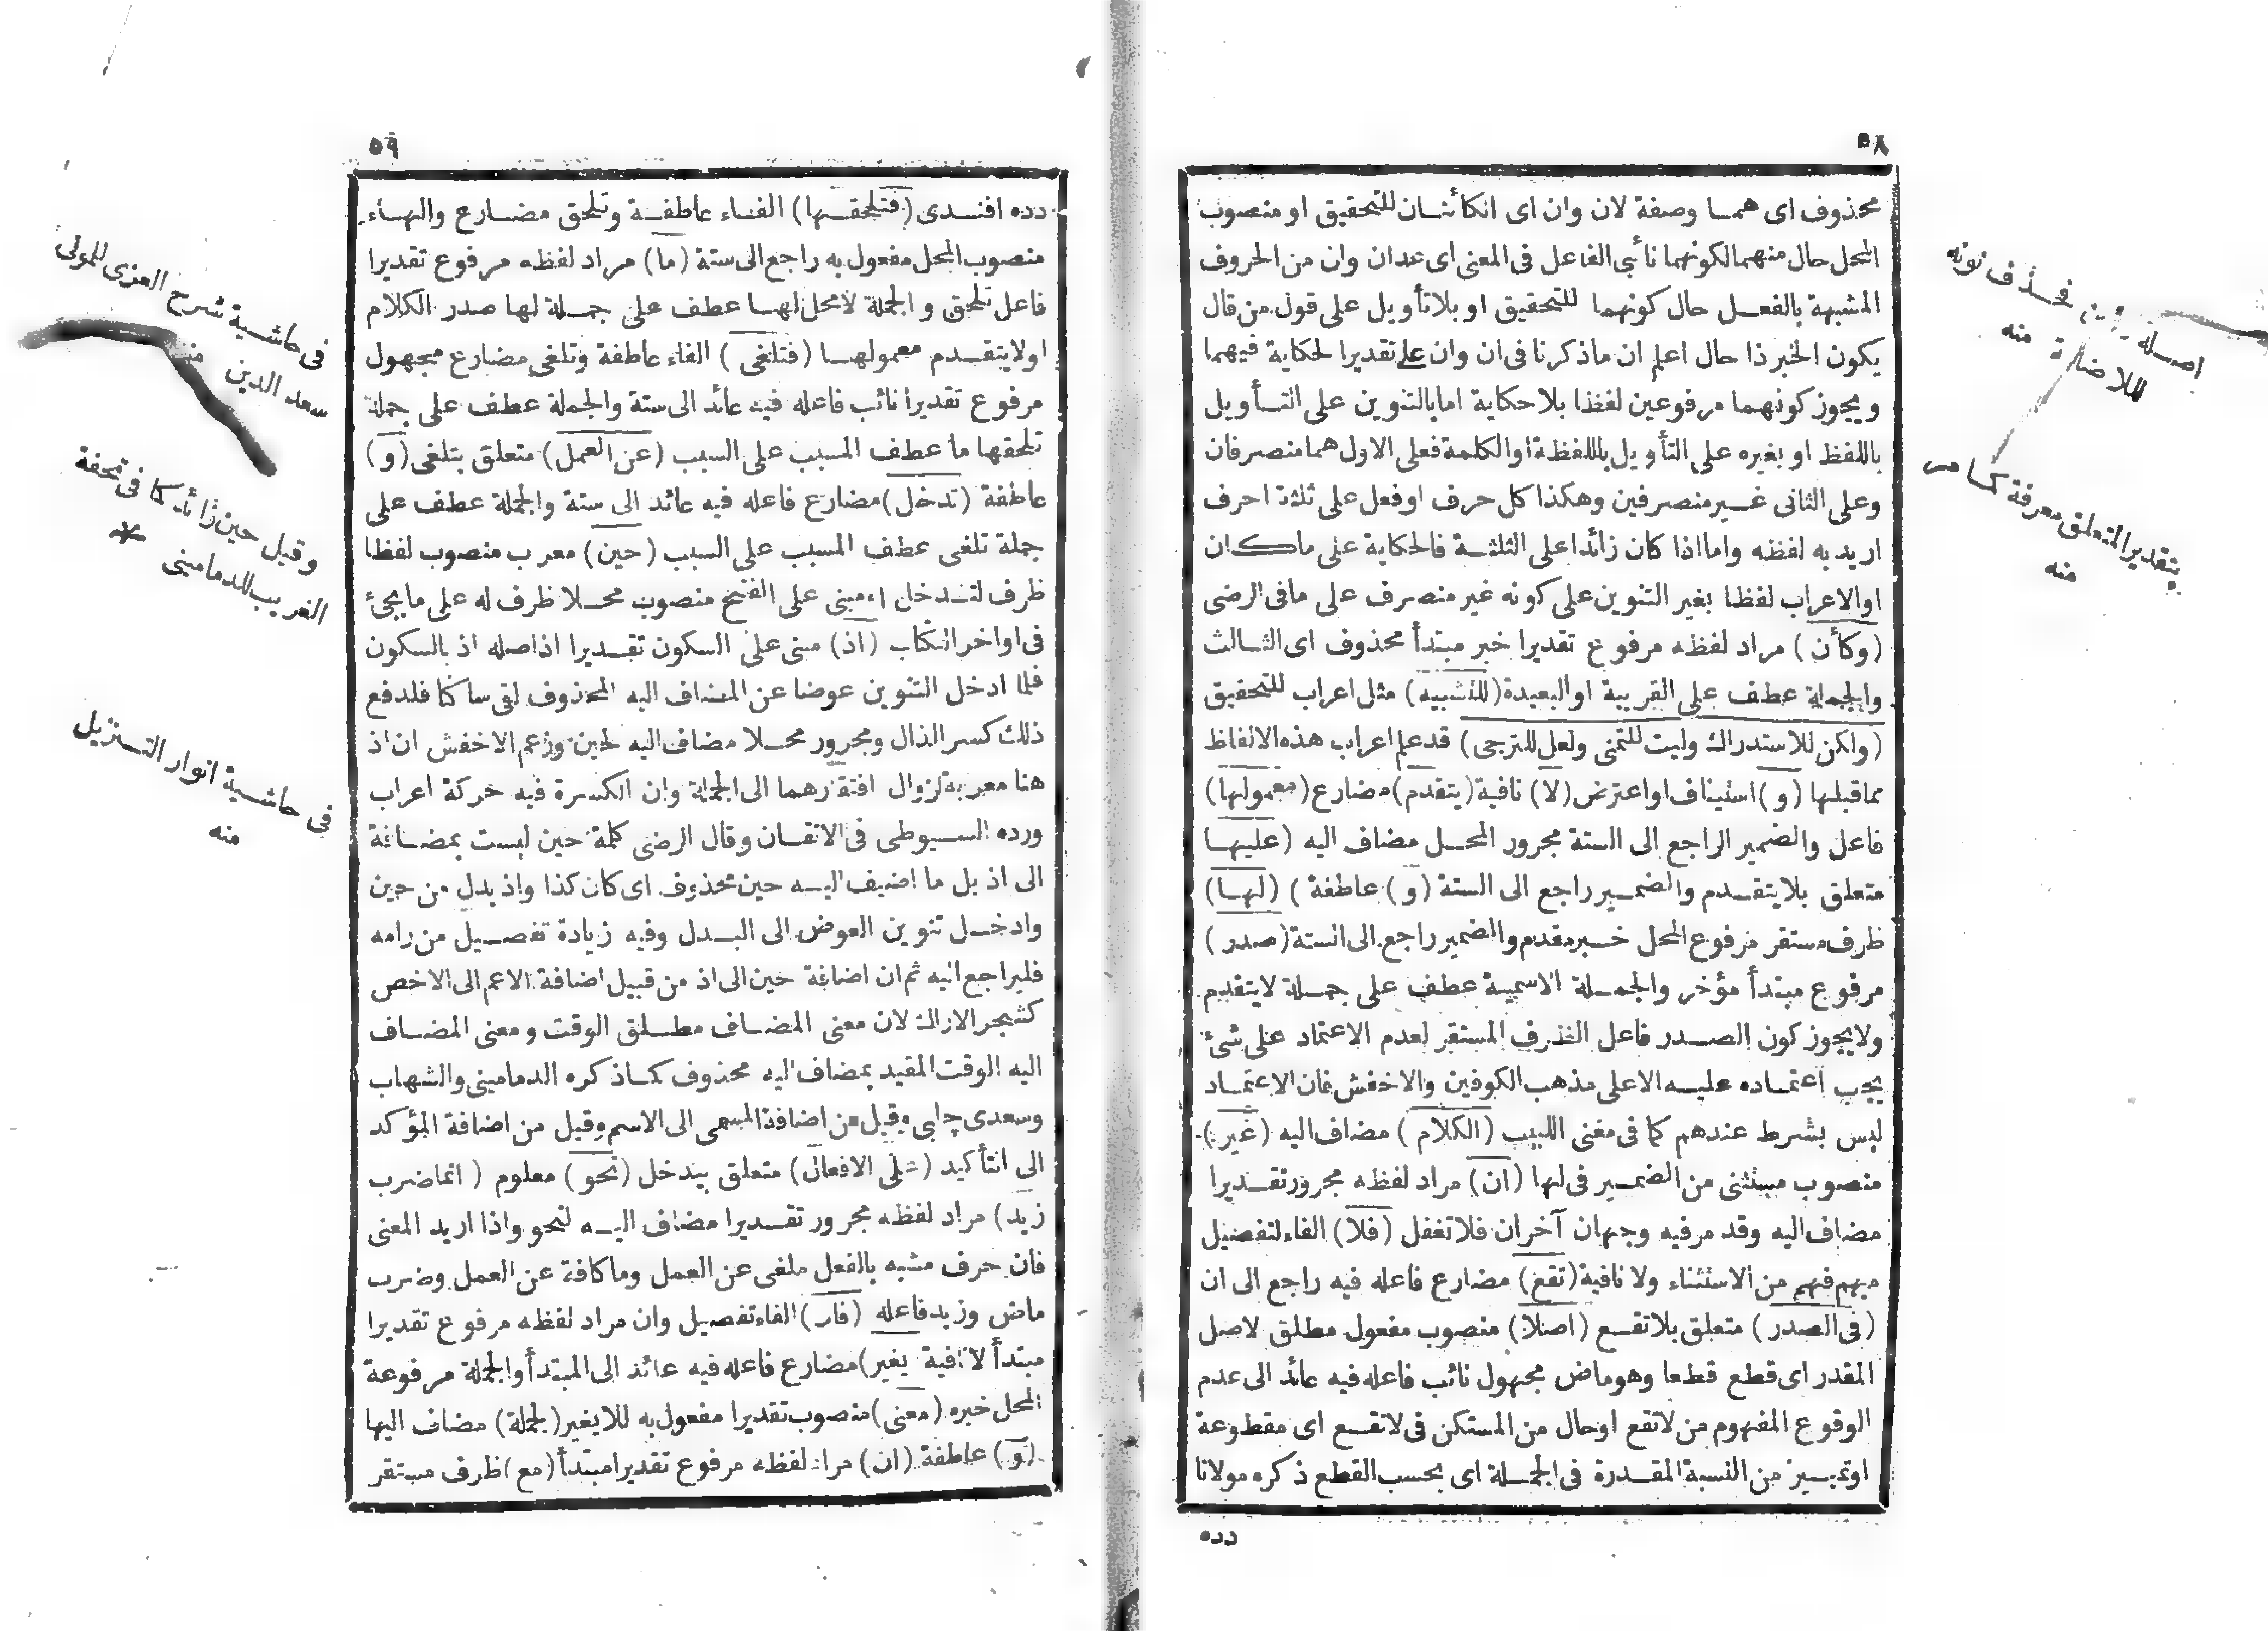 ٥٨
محذوف اى همـا وصفة لان وان اى انكأئنـان للتحقيق او منصوب
المحل حال منهما لكونهما نائبى الفاعل فى المعنى اى عدان وان من الحروف
المشبهة بالفعـل حال كونهما للتحقيق او بلا تأويل على قول من قال
يكون الخبر ذا حال اعلم ان ما ذكرنا فى ان وان على تقدير الحكاية فيهما
ويجوز كونهما مرفوعين لفظا بلا حكاية اما بالتنوين على التـأويل
باللفظ او بغيره على التأويل باللفظة او الكلمة فعلى الاول هما منصرفان
وعلى الثانى غـير منصرفين وهكذا كل حرف او فعل على ثلثة احرف
اريد به لفظه واما اذا كان زائدا على الثلثـة فالحكاية على ماكان
او الاعراب لفظا بغير التنوين على كونه غير منصرف على ما فى الرضى
(وكأن) مراد لفظه مرفوع تقديرا خبر مبتدأ محذوف اى الثـالث
والجملة عطف على القريبة او البعيدة (للتشبيه) مثل اعراب للتحقيق
(ولكن للاستدراك وليت للتمنى ولعل للترجى) قد علم اعراب هذه الالفاظ
مما قبلها (و) استيناف او اعتراض (لا) نافية (يتقدم) مضارع (معمولها)
فاعل والضمير الراجع الى الستة مجرور المحـل مضاف اليه (عليهـا
متعلق بلا يتقـدم والضمـير راجع الى الستة (و) عاطفة ) (لهـا)
ظرف مستقر مرفوع المحل خـبر مقدم والضمير راجع الى الستة (صدر)
مرفوع مبتدأ مؤخر والجمـلة الاسمية عطف على جمـلة لا يتقدم
ولا يجوز كون الصـدر فاعل الظرف المستقر لعدم الاعتماد على شئ
يجب اعتمـاده عليـه الا على مذهب الكوفين والاخفش فان الاعتمـاد
ليس بشرط عندهم كما فى مغنى اللبيب (الكلام) مضاف اليه (غير)
منصوب مستثنى من الضمـير فى لها (ان) مراد لفظه مجرور تقـديرا
مضاف اليه وقد مر فيه وجهان آخران فلا تغفل (فلا) الفاء لتفصيل
مبهم فهم من الاستثناء ولا نافية (تقع) مضارع فاعله فيه راجع الى ان
(فى الصدر) متعلق بلا تقـع (اصلا) منصوب مفعول مطلق لاصل
المقدر اى قطع قطعا وهو ماض مجهول نائب فاعله فيه عائد الى عدم
الوقوع المفهوم من لا تقع او حال من المستكن فى لا تقـع اى مقطوعة
او تميـيز من النسبة المقـدرة فى الجمـلة اى بحسب القطع ذكره مولانا
دده
اصـله يون فحـذف نونه
للاضافة منه
بتقدير المتعلق معرفة كما مر
منه
٥٩
دده افنـدى (فتلحقـها) الفـاء عاطفـة وتلحق مضـارع والهـاء
منصوب المحل مفعول به راجع الى ستة (ما) مراد لفظه مرفوع تقديرا
فاعل تلحق والجملة لا محل لهـا عطف على جمـلة لها صدر الكلام
او لا يتقـدم معمولهـا (فتلغى) الفاء عاطفة وتلغى مضارع مجهول
مرفوع تقديرا نائب فاعله فيه عائد الى ستة والجملة عطف على جملة
تلحقها ما عطف المسبب على السبب (عن العمل) متعلق بتلغى (و)
عاطفة (تدخل) مضارع فاعله فيه عائد الى ستة والجملة عطف على
جملة تلغى عطف المسبب على السبب (حين) معرب منصوب لفظا
ظرف لتـدخل او مبنى على الفتح منصوب محـلا ظرف له على ما يجئ
فى اواخر الكتاب (اذ) مبنى على السكون تقـديرا اذ اصله اذ بالسكون
فلما ادخل التنوين عوضا عن المضاف اليه المحذوف لقى ساكنا فلدفع
ذلك كسر الذال ومجرور محـلا مضاف اليه لحين وزعم الاخفش ان اذ
هنا معربة لزوال افتقارهما الى الجملة وان الكسرة فيه حركة اعراب
ورده السيوطى فى الاتقـان وقال الرضى كلمة حين ليست بمضـافة
الى اذ بل ما اضيف اليـه حين محذوف اى كان كذا واذ بدل من حين
وادخـل تنوين العوض الى البـدل وفيه زيادة تفصـيل من رامه
فليراجع اليه ثم ان اضافة حين الى اذ من قبيل اضافة الاعم الى الاخص
كشجر الاراك لان معنى المضـاف مطـلق الوقت ومعنى المضـاف
اليه الوقت المقيد بمضاف اليه محذوف كمـا ذكره الدمامينى والشهاب
وسعدى چلبى وقيل من اضافة المسمى الى الاسم وقيل من اضافة المؤكد
الى التأكيد (على الافعال) متعلق بيدخل (نحو) معلوم ( انما ضرب
زيد) مراد لفظه مجرور تقـديرا مضاف اليـه لنحو واذا اريد المعنى
فان حرف مشبه بالفعل ملغى عن العمل وما كافة عن العمل وضرب
ماض وزيد فاعله (فان) الفاء تفصيل وان مراد لفظه مرفوع تقديرا
مبتدأ لا نافية يغير) مضارع فاعله فيه عائد الى المبتدأ والجملة مرفوعة
المحل خبره (معنى) منصوب تقديرا مفعول به للا يغير (لجملة) مضاف اليها
(و) عاطفة (ان) مراد لفظه مرفوع تقديرا مبتدأ (مع) ظرف مستقر
فى حاشـية شرح العزى للمولى
سعد الدين منه
وقيل حين زائد كما فى تحفة
الغريب للدمامينى
فى حاشـية انوار التـنزيل
منه